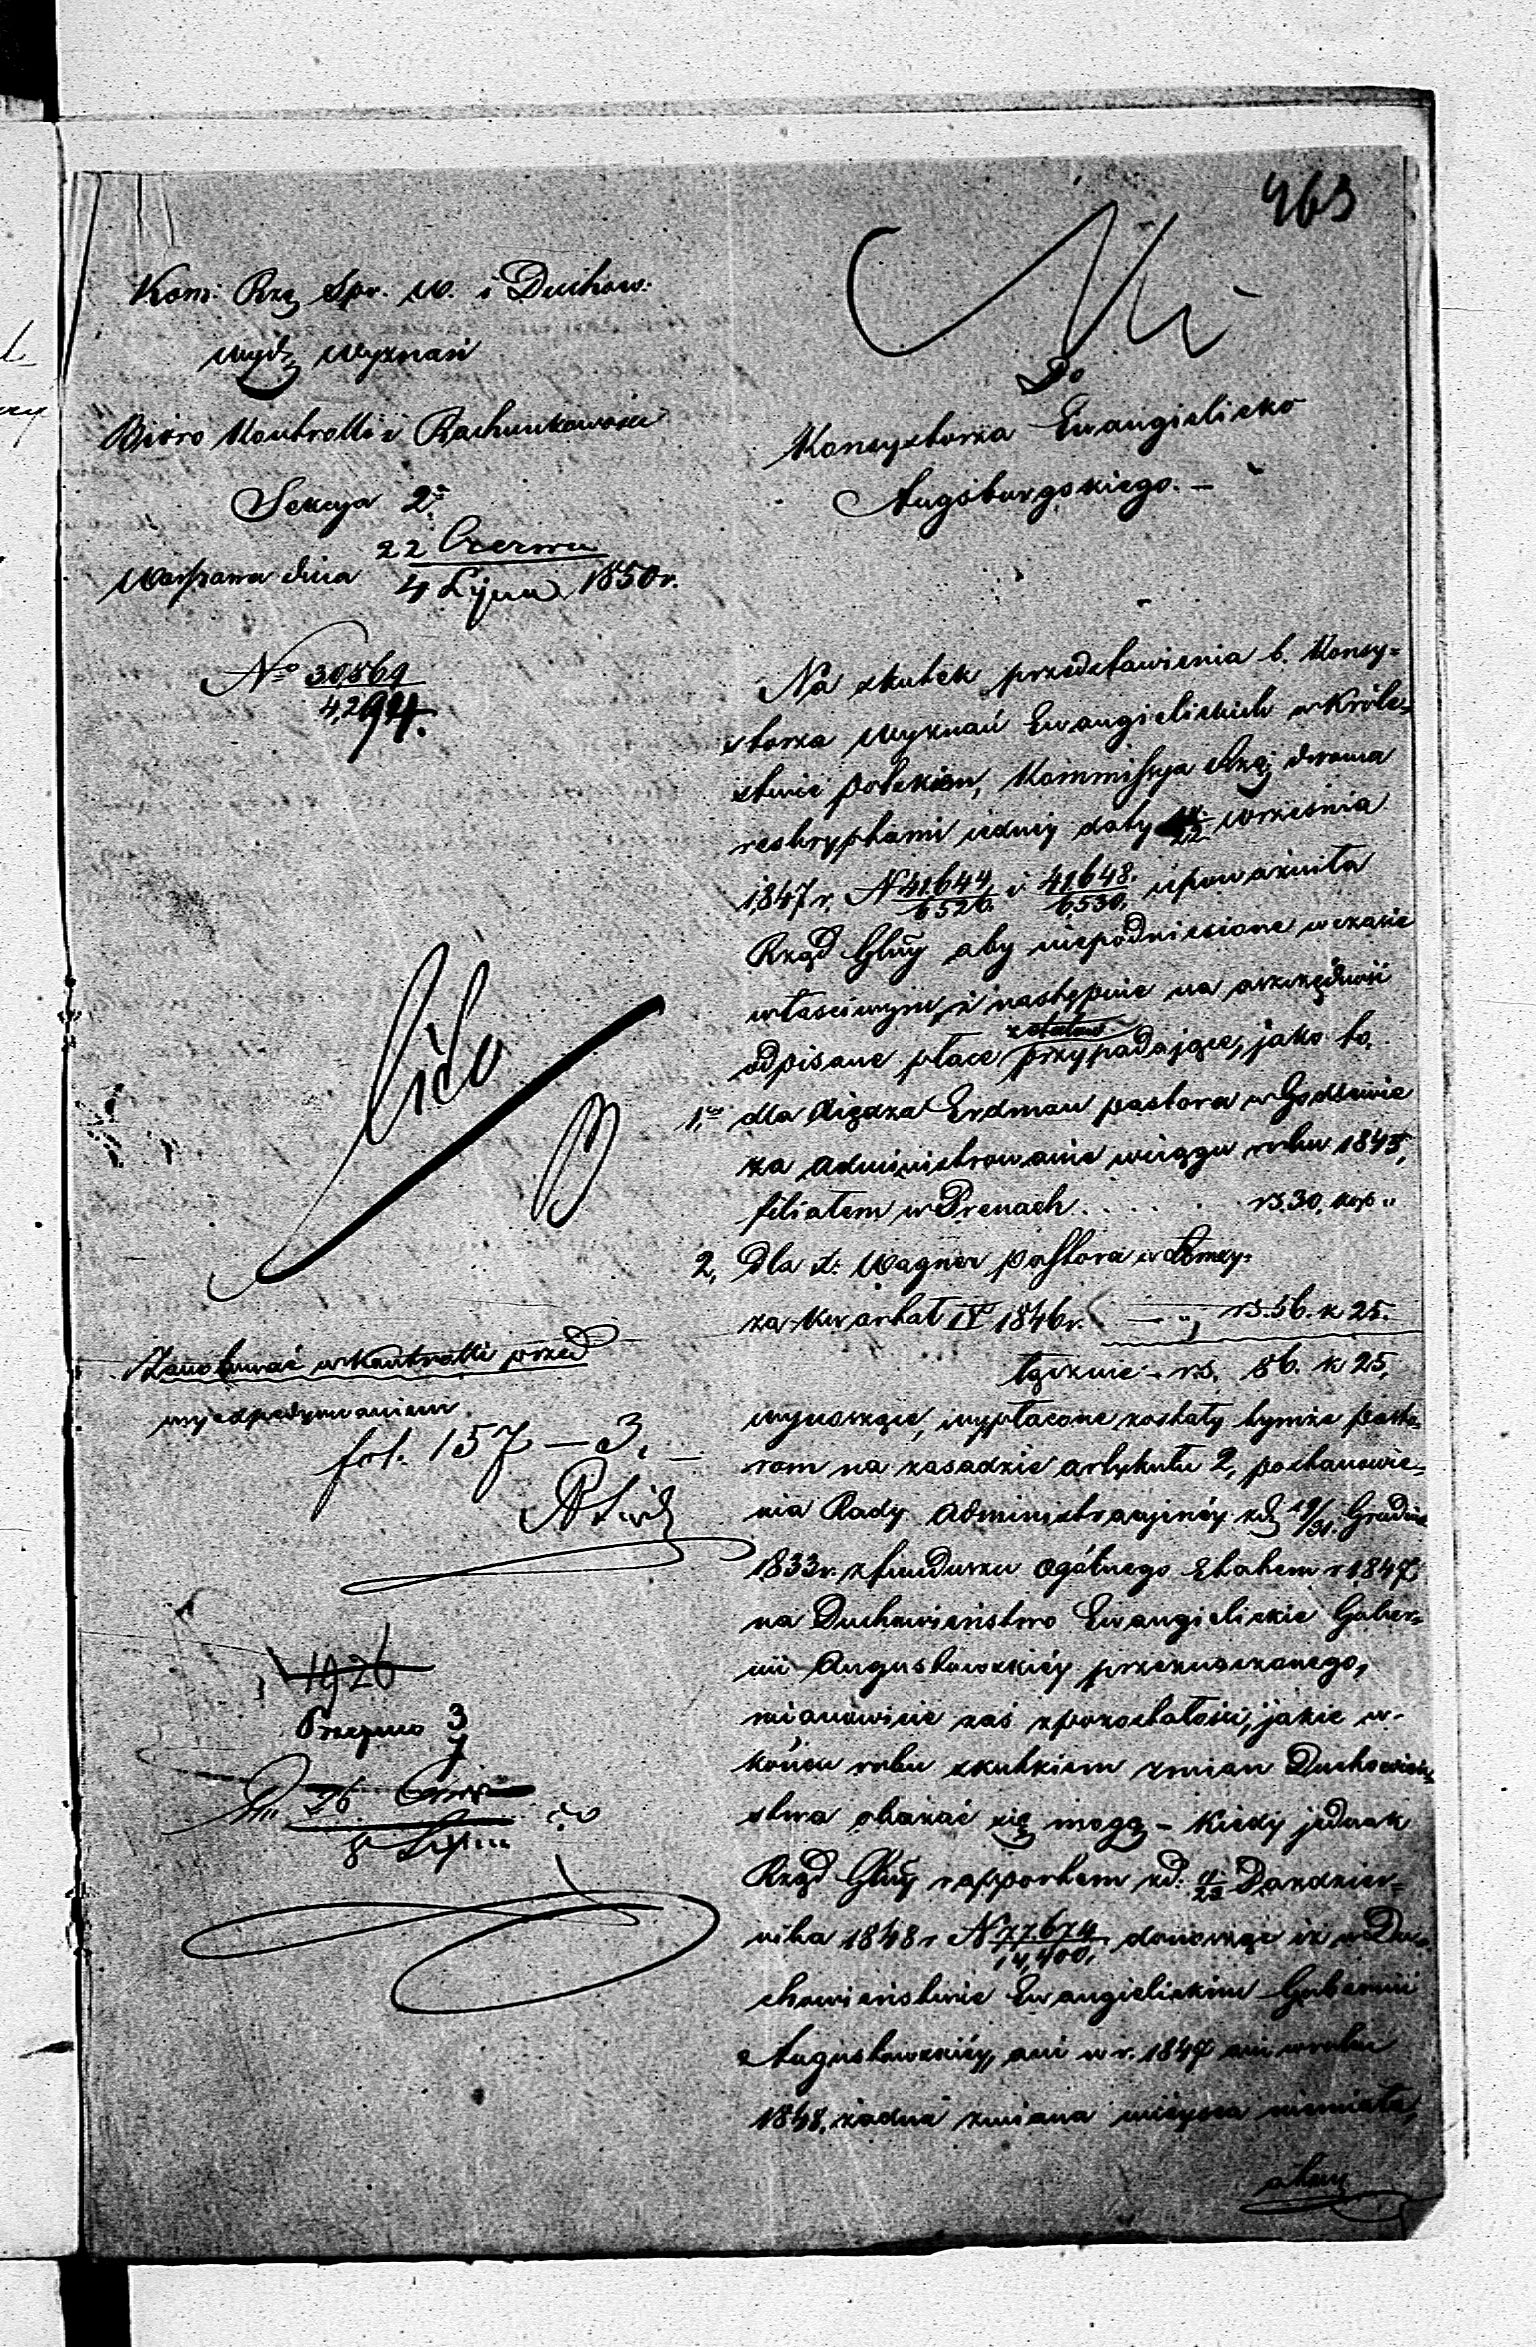 463
Kom. Rzą Spr. W. i Duchow.
Wydz. Wyznań
Bióro Kontrolli i Rachunkowości
Sekcya 2ª
Warszawa dnia 22 Czerwca / 4 Lipca 1850 r.
Nº 30,869 / 4,294.
Do
Konsystorza Ewangielicko
Augsburgskiego. –
Na skutek przedstawienia b. Konsy-
storza Wyznań Ewangielickich w Króle-
stwie Polskiem, Kommissya Rzą: dwoma
reskryptami iedney daty /22 Września
1847 r. N 41.644/6526. i 41.648./6,530, upoważniła
Rząd Glny aby niepodniesione w czasie
właściwym, i następnie na oszczędność
odpisane płace z etatów przypadające, jako to,
1, dla Xiędza Erdman pastora w Godlewie
za administrowanie w ciągu roku 1845,
filiałem w Prenach . . . . . rs. 30, kop "
2, Dla X. Wagner Pastora w Łomży
za kwartał IV 1846 r. – " rs. 56. k 25.
łącznie – rs. 86. k 25,
wynoszące, wypłacone zostały tymże Pasto-
rom na zasadzie artykułu 2, postanowie-
nia Rady Administracyjnéy z d. 19/31. Grudnia
1833 r. z funduszu ogólnego Etatem r 1847
na Duchowieństwo Ewangielickie Guber-
nii Augustowskiéy przeznaczonego,
mianowicie zaś z pozostałości, jakie w
końcu roku skutkiem zmian Duchowień-
stwa okazać się mogą – Kiedy jednak
Rząd Glny rapportem z d. /23 Paździer-
nika 1848 r N 77.674/14,400, donosząc iż w Du-
chowieństwie Ewangielickim Gubernii
Augustowskiéy, ani w r. 1847 ani w roku
1848, żadna zmiana mieysca niemiała,
Cito
Zanotować w Kontrolli przed
wyexpedyowaniem
fol. 157 – 3.
1926
3
7
26
8 Lip